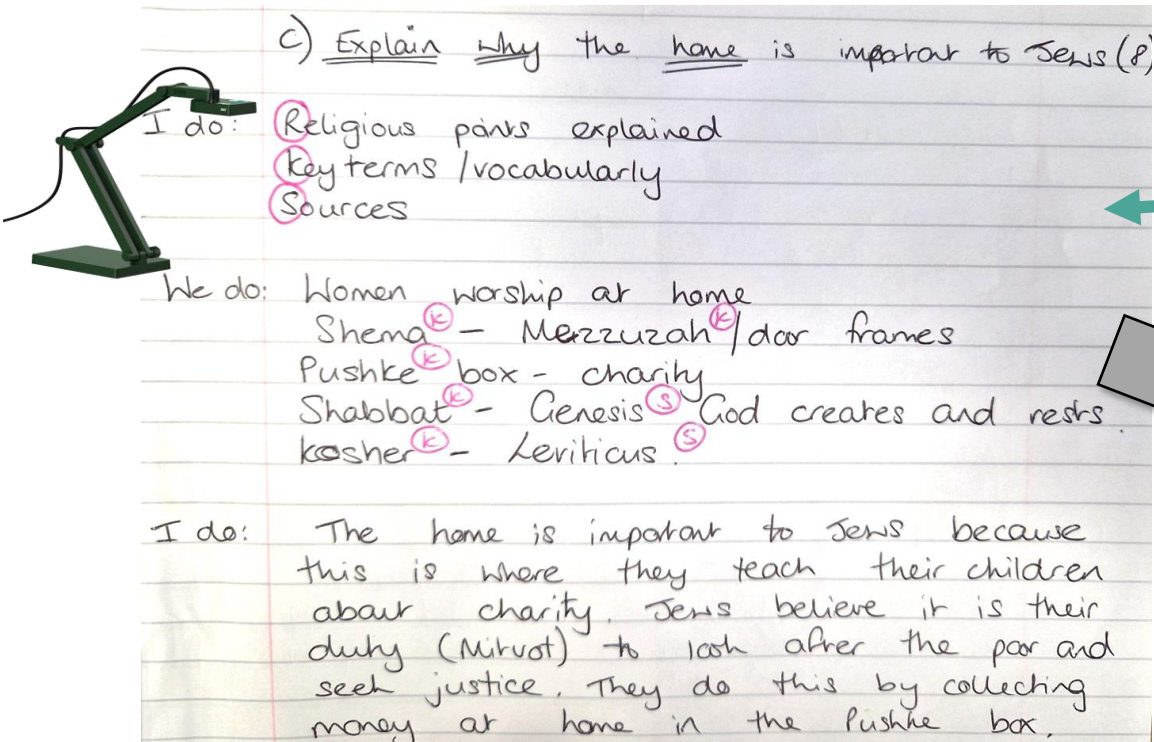 c) Explain why the home is important to Jews (8)
I do: Religious points explained
Key terms / vocabularly
Sources
We do: Women worship at home
Shema K - Mezzuzah K / door frames
Pushke K box - charity
Shabbat K - Genesis S God creates and rests.
kosher K - Leviticus. S
I do: The home is important to Jews because
this is where they teach their children
about charity. Jews believe it is their
duty (Mitvot) to look after the poor and
seek justice. They do this by collecting
money at home in the Pushke box.